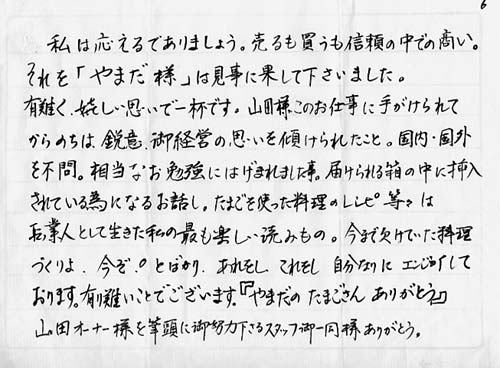 6
私は応えるでありましょう。売るも買うも信頼の中での商い。
それを「やまだ様」は見事に果して下さいました。
有難く、嬉しい思いで一杯です。山田様このお仕事に手がけられて
からのちは、鋭意、御経営の思いを傾けられたこと。国内・国外
を不問。相当なお勉強にはげまれました事。届けられる箱の中に挿入
されている為になるお話し。たまごを使った料理のレシピ等々は
農業人として生きた私の最も楽しい読みもの。今まで欠けていた料理
づくりよ、今ぞ!!とばかり、あれをし、これをし 自分なりに エンジョイして
おります。有り難いことでございます。『やまだの たまごさん ありがとう』
山田オーナー様を筆頭に御努力下さるスタッフ御一同様ありがとう。